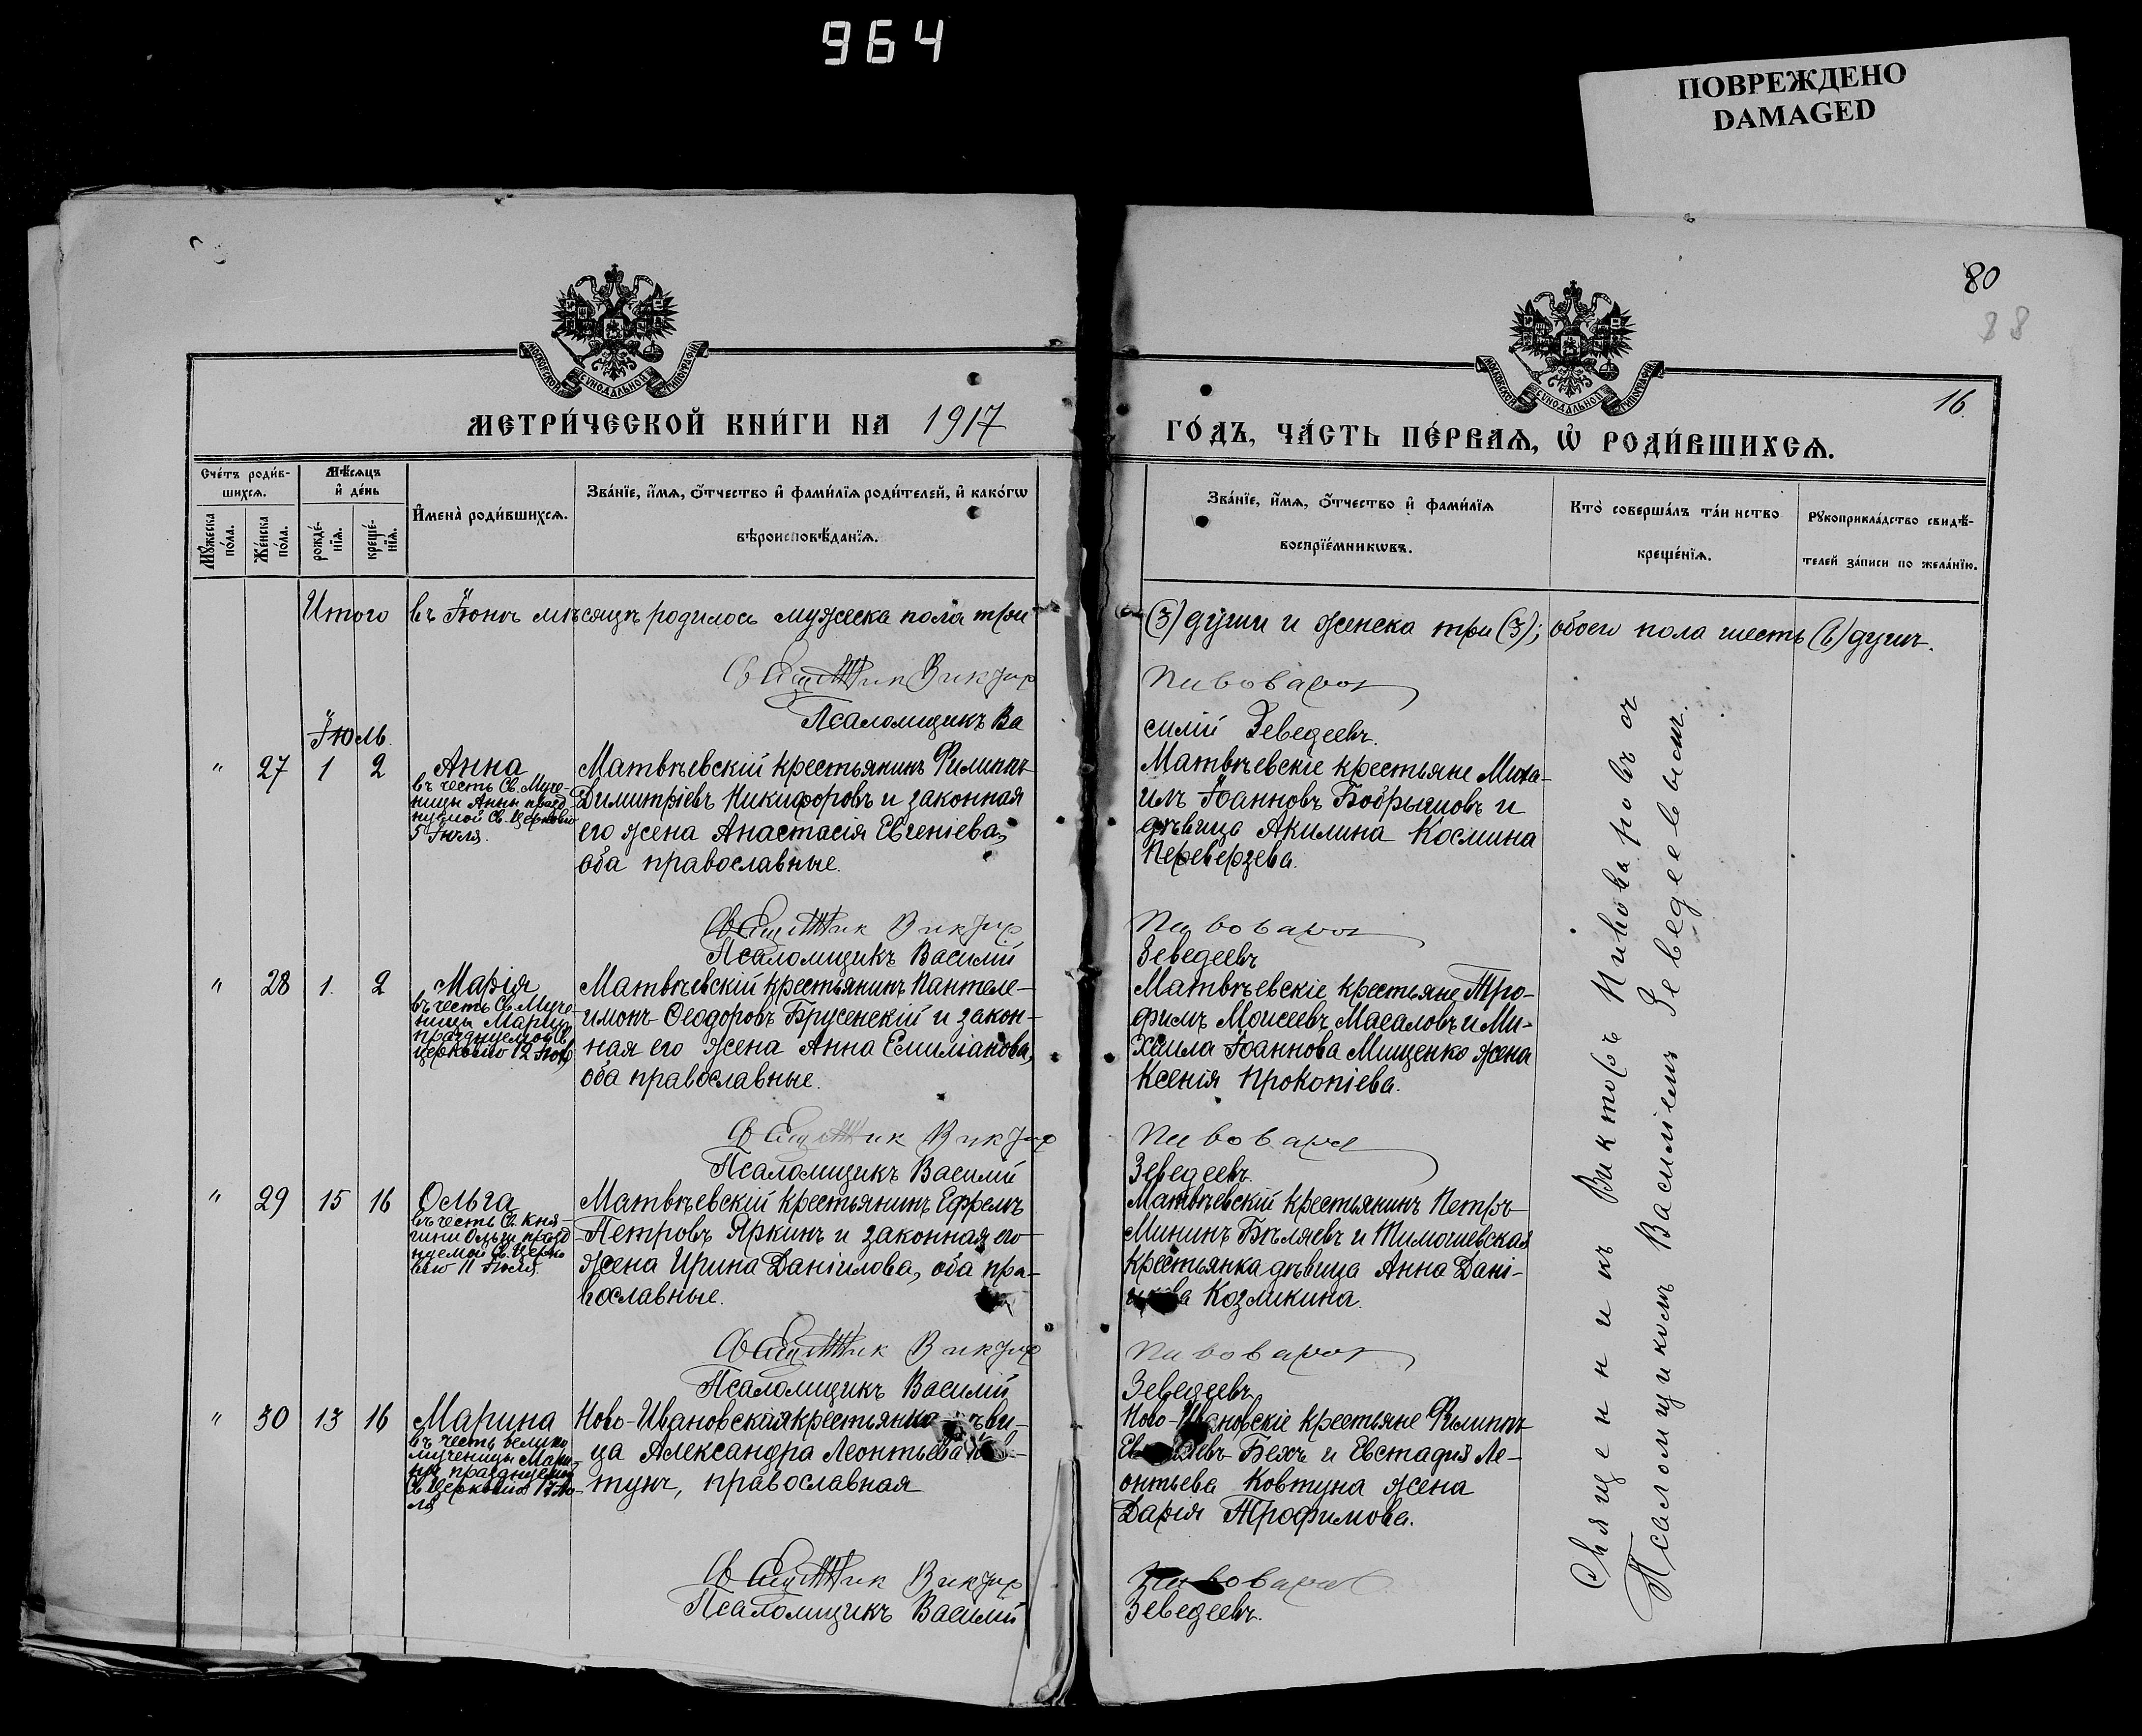 964
ПОВРЕЖДЕНО
DAMAGED
80
38
16
МОСКОВСКОЙ СѴНОДАЛЬНОЙ ТИПОГРАФІИ
МОСКОВСКОЙ СѴНОДАЛЬНОЙ ТИПОГРАФІИ
МЕТРИ́ЧЕСКОЙ КНИ́ГИ НА 1917
ГО́ДЪ, ЧА́СТЬ ПЕ́РВАѦ, Ѽ РОДИ́ВШИХСѦ.
Сче́тъ роди́в-
шихсѧ.
Мѣ́сѧцъ
и҆ де́нь
Мꙋ́жеска
по́ла.
Же́нска
по́ла.
рожде́-
нїѧ.
креще́-
нїѧ.
И҆мена̀ роди́вшихсѧ.
Зва́нїе, и҆́мѧ, ѻ҆́тчество и҆ фами́лїѧ роди́телей, и҆ како́гѡ
вѣроисповѣ́данїѧ.
Зва́нїе, и҆́мѧ, ѻ҆́тчество и҆ фами́лїѧ
воспрїе́мникѡвъ.
Кто̀ соверша́лъ та́инство
креще́нїѧ.
Рꙋкоприкла́дство свидѣ́-
телей за́писи по жела́нїю.
Итого въ Іюнѣ мѣсяцѣ родилось мужеска пола три
(3) души и женска три (3); обоего пола шесть (6) душъ.
Священник Виктор
Пивоваров
Псаломщикъ Ва
силій Зеведеевъ.
Іюль.
" 27 1 2 Анна
въ честь Св. Муче-
ницы Анны празд-
нуемой Св. Церковію
5 Іюля.
Матвѣевскій крестьянинъ Филиппъ
Димитріевъ Никифоровъ и законная
его жена Анастасія Евгеніева,
оба православные.
Матвѣевскіе крестьяне Миха-
илъ Іоанновъ Бобрышовъ и
дѣвица Акилина Космина
Переверзева.
Священник Виктор
Пивоваров
Псаломщикъ Василій
Зеведеевъ
" 28 1. 2 Марія
въ честь Св. Муче-
ницы Маріи,
празднуемой Св.
церковію 12 Іюля
Матвѣевскій крестьянинъ Пантеле-
имонъ Ѳеодоровъ Брусенскій и закон-
ная его жена Анна Емиліанова,
оба православные.
Матвѣевскіе крестьяне Тро-
фимъ Моисеевъ Масаловъ и Ми-
хаила Іоаннова Мищенко жена
Ксенія Прокопіева.
Священник Виктор
Пивоваров
Псаломщикъ Василій
Зеведеевъ.
" 29 15 16 Ольга
въ честь Св. Кня-
гини Ольги празд-
нуемой Св. Церко
вію 11 Іюля.
Матвѣевскій крестьянинъ Ефремъ
Петровъ Яркинъ и законная его
жена Ирина Даніилова, оба пра-
вославные.
Матвѣевскій крестьянинъ Петръ
Мининъ Бѣляевъ и Тимошевская
крестьянка дѣвица Анна Дані-
Козликина.
Священник Виктор
Пивоваров
Псаломщикъ Василій
Зеведеевъ
" 30 13 16 Марина
въ честь велико
мученицы Мари-
ны празднуемой
Св Церковію 17 Ію-
ля
Ново-Ивановская крестьянка
ца Александра Леонтьева
тунъ, православная
Ново-Ивановскіе крестьяне Филиппъ
Бехъ и Евстафія Ле-
онтьева Ковтуна жена
Дарія Трофимова.
Священник Виктор
Пивоваров
Псаломщикъ Василій
Зеведеевъ.
Священникъ Викторъ Пивоваровъ съ
Псаломщикомъ Василіемъ Зеведеевымъ.